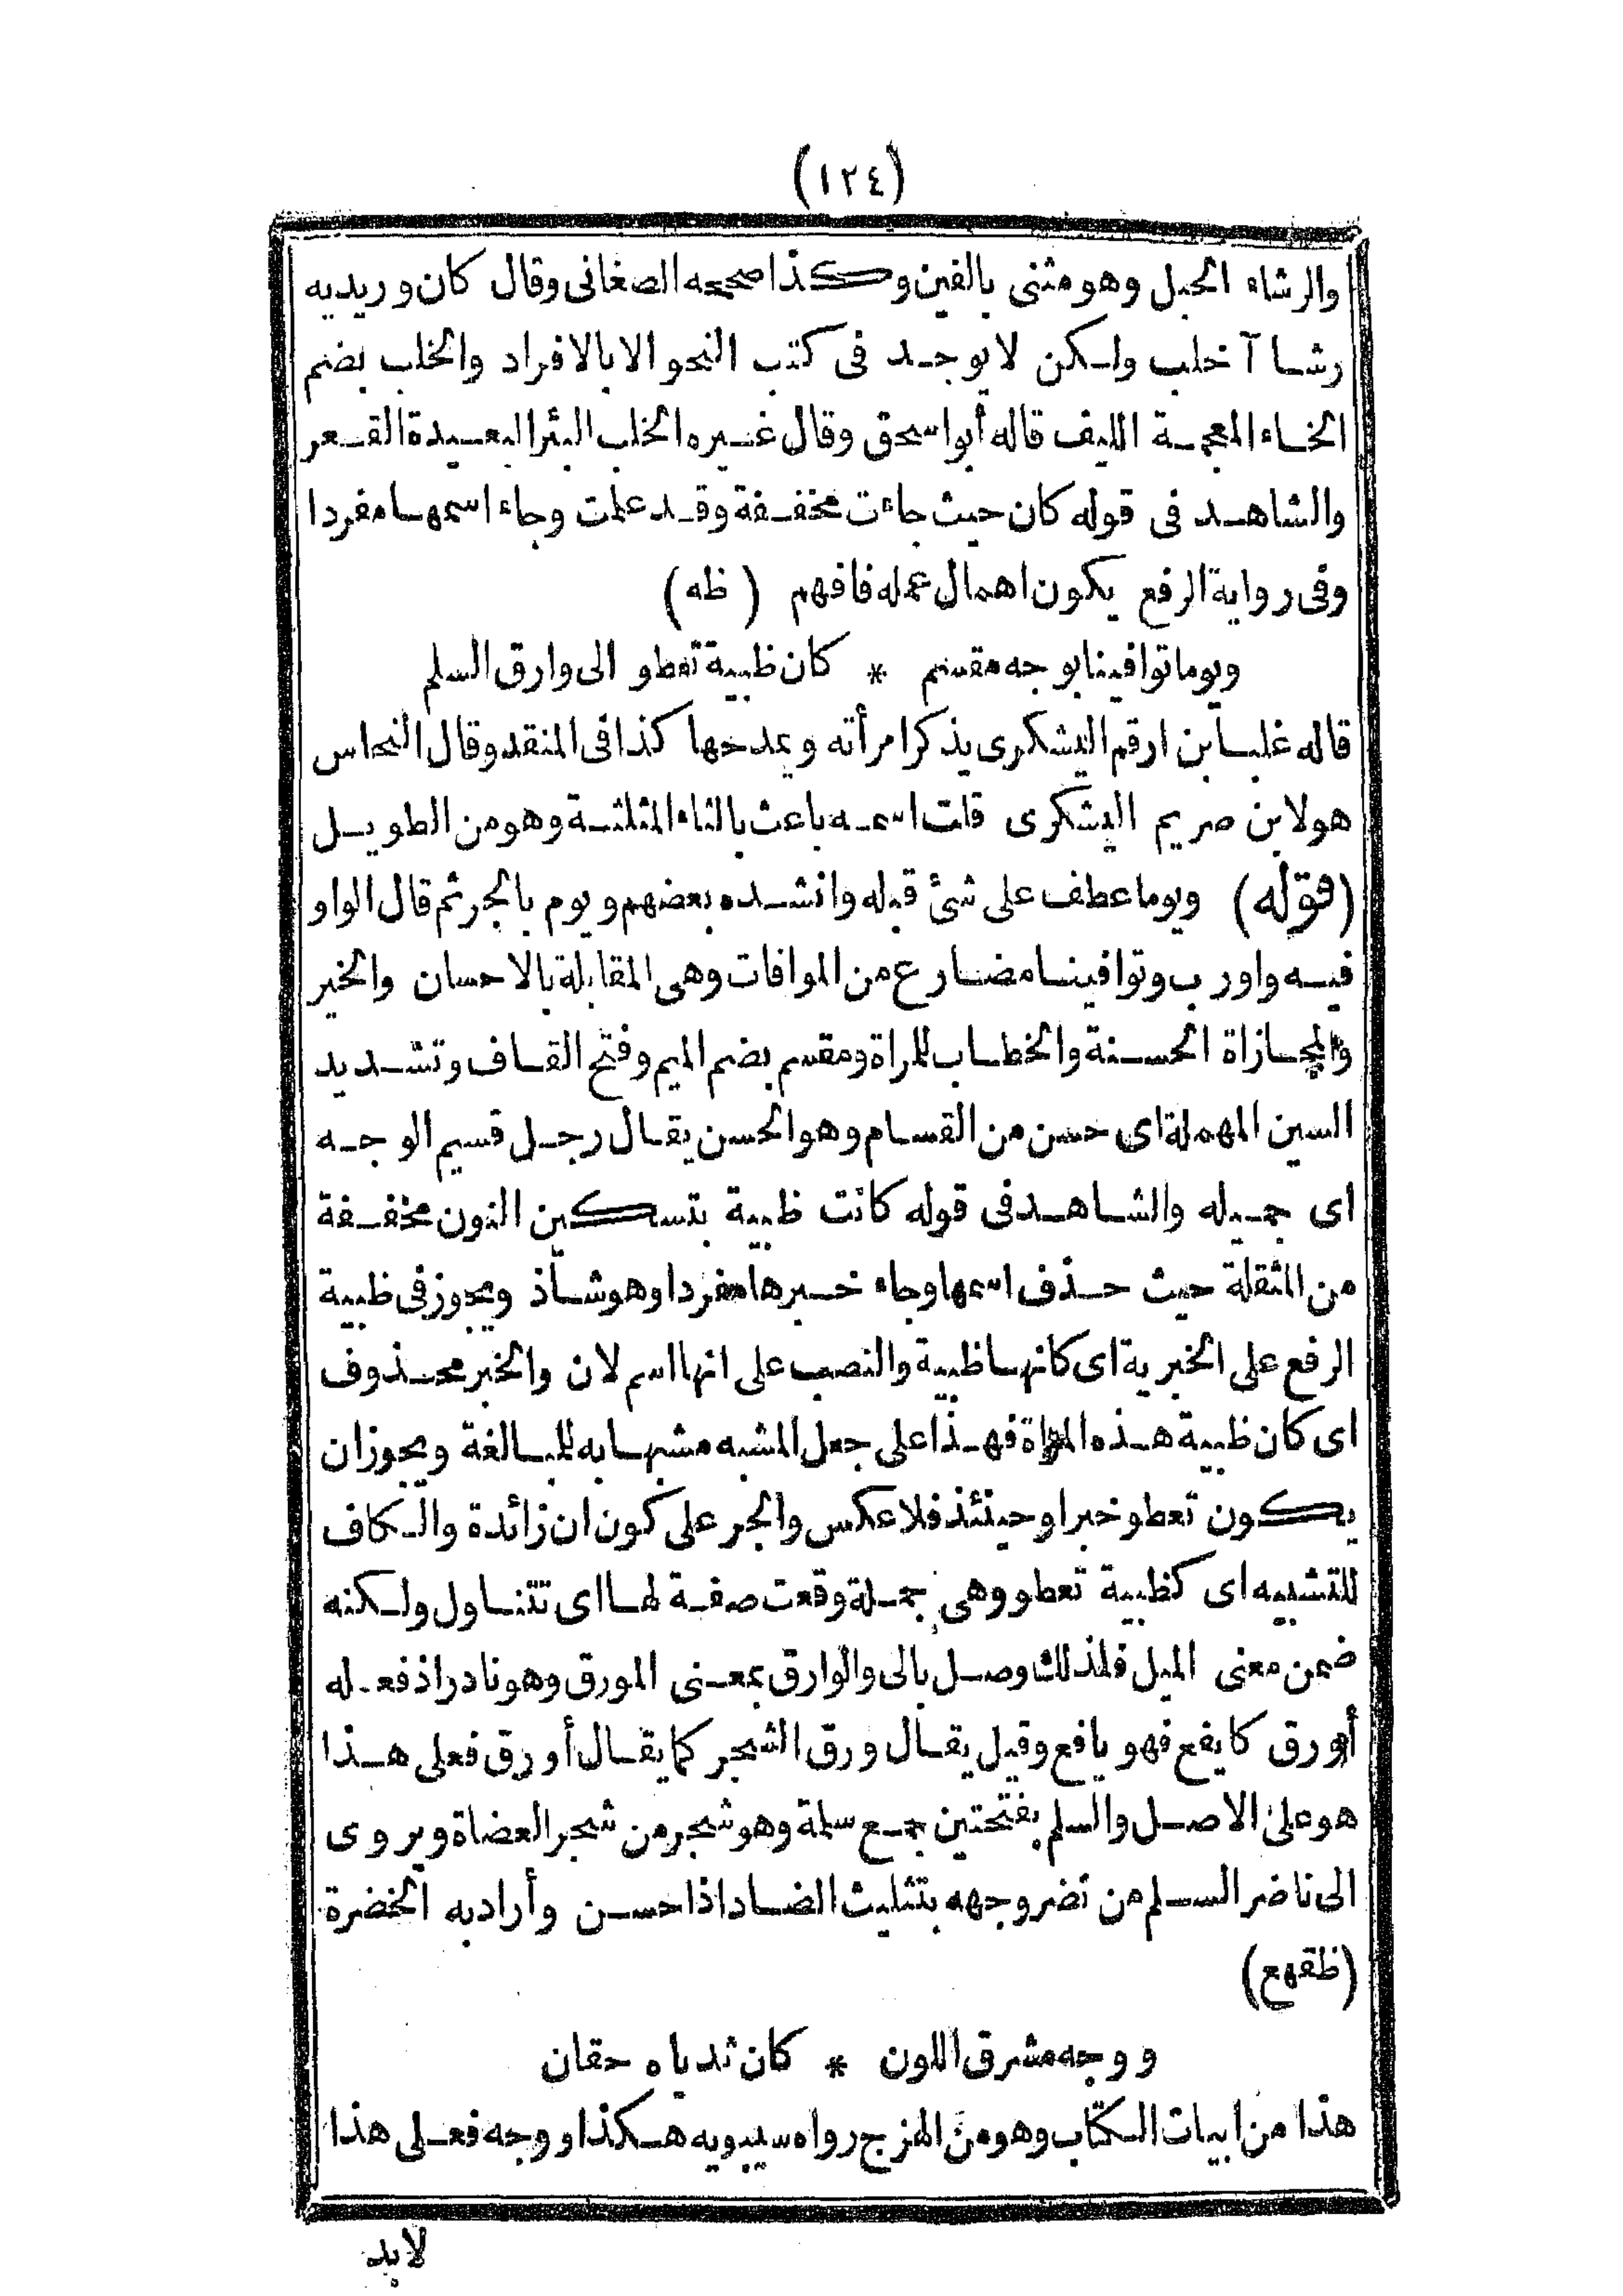 (١٢٤)
والرشاء الحبل وهو مثنى بالفين وكذا صححه الصغانى وقال كان وريديه
رشا آ خلب ولكن لا يوجد فى كتب النحو الا بالافراد والخلب بضم
الخاء المعجمة الليف قاله أبو اسحق وقال غيره الخلب البئر البعيدة القعر
والشاهد فى قوله كان حيث جاءت مخففة وقد عملت وجاء اسمها مفردا
وفى رواية الرفع يكون اهمال عمله فافهم (ظه)
ويوما توافينا بوجه مقسم * كان ظبية تعطو الى وارق السلم
قاله غلبا بن ارقم اليشكرى يذكر امرأته ويمدحها كذا فى المنقد وقال النحاس
هو لابن صريم اليشكرى قلت اسمه باعث بالثاء المثلثة وهو من الطويل
(قوله) ويوما عطف على شئ قبله وانشده بعضهم ويوم بالجر ثم قال الواو
فيه واو رب وتوافينا مضارع من الموافات وهى المقابلة بالاحسان والخير
والمجازاة الحسنة والخطاب للمراة ومقسم بضم الميم وفتح القاف وتشديد
السين المهملة اى حسن من القسام وهو الحسن يقال رجل قسيم الوجه
اى جميله والشاهد فى قوله كانت ظبية بتسكين النون مخففة
من المثقلة حيث حذف اسمها وجاء خبرها مفردا وهو شاذ ويجوز فى ظبية
الرفع على الخبرية اى كانها ظبية والنصب على انها اسم لان والخبر محذوف
اى كان ظبية هذه المراة فهذا على جعل المشبه مشبها به للمبالغة ويجوز ان
يكون تعطو خبرا وحينئذ فلا عكس والجر على كون ان زائدة والكاف
للتشبيه اى كظبية تعطو وهى جملة وقعت صفة لها اى تتناول ولكنه
ضمن معنى الميل فلذلك وصل بالى والوارق بمعنى المورق وهو نادر اذ فعله
أورق كايفع فهو يافع وقيل يقال ورق الشجر كما يقال أورق فعلى هذا
هو على الاصل والسلم بفتحتين جمع سلمة وهو شجر من شجر العضاة ويروى
الى ناضر السلم من نضر وجهه بتثليث الضاد اذا حسن وأراد به الخضرة
(ظقهع)
ووجه مشرق اللون * كان ثدياه حقان
هذا من ابيات الكتاب وهو من الهزج رواه سيبويه هكذا ووجه فعلى هذا
لا بد